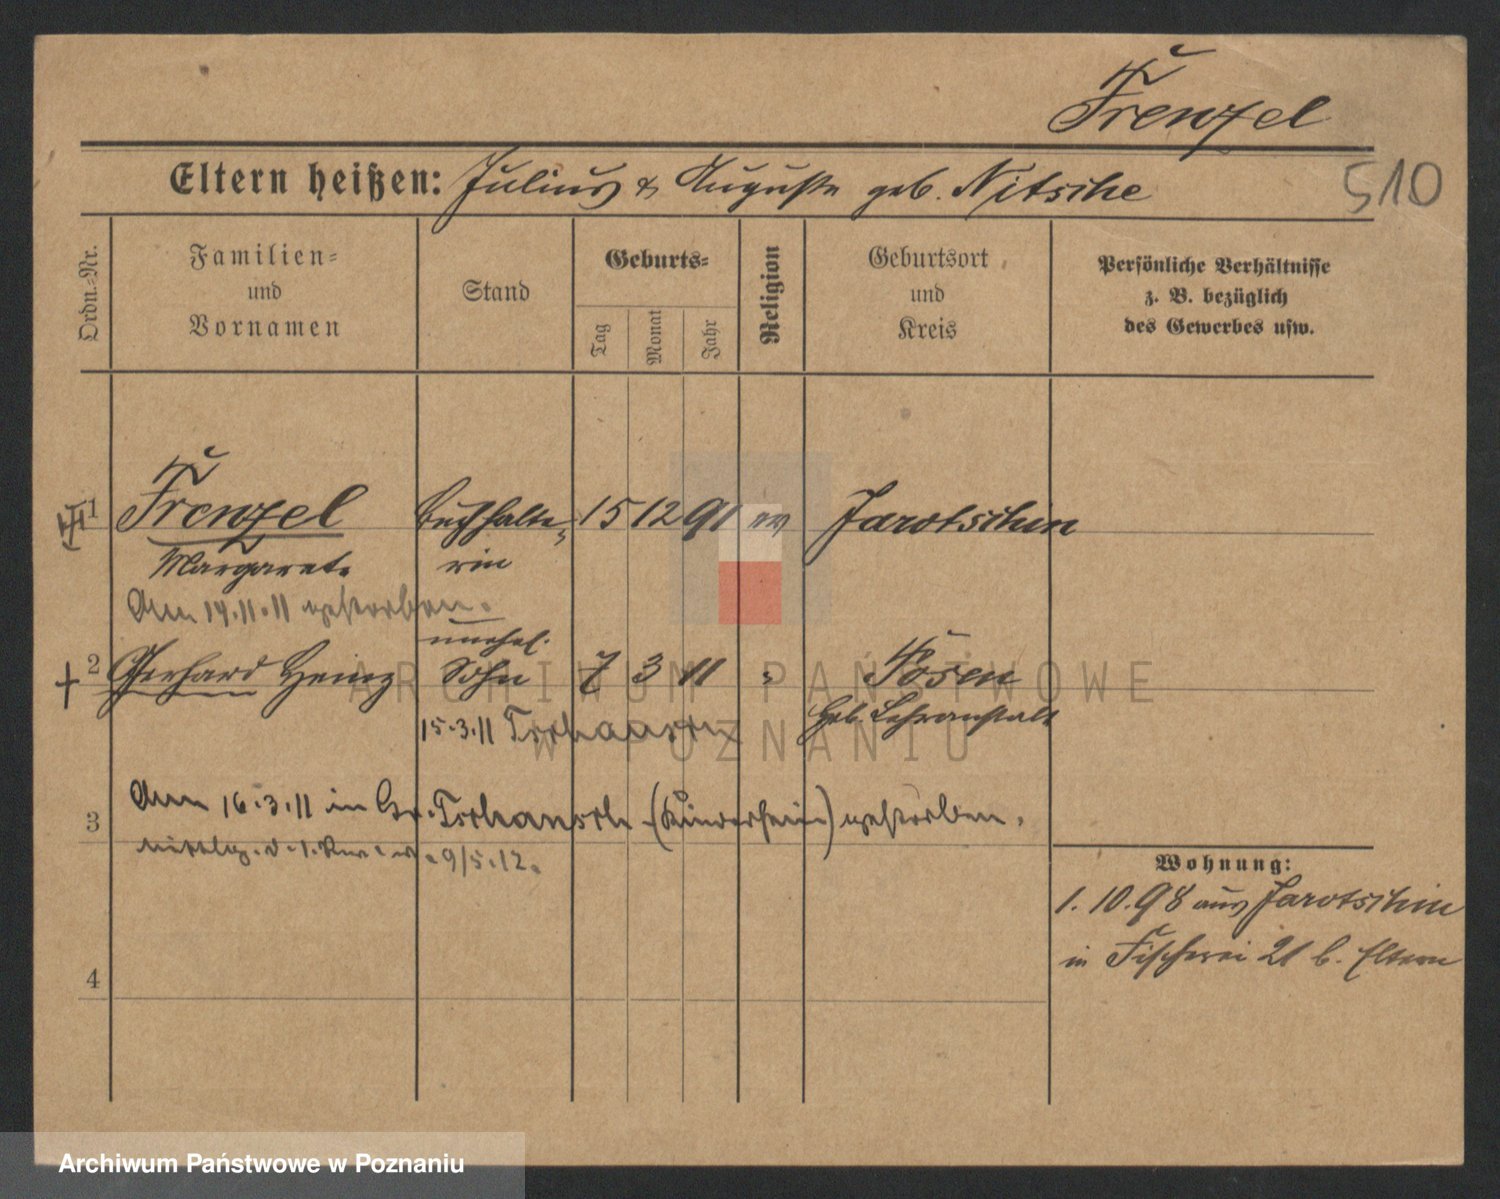 Frenzel
Eltern heißen: Julius & Auguste geb. Nitsche
510
Ordn.-Nr.
Familien-
und
Vornamen
Stand
Geburts-
Tag
Monat
Jahr
Religion
Geburtsort
und
Kreis
Persönliche Verhältnisse
z. B. bezüglich
des Gewerbes usw.
1 Frenzel Buchhalte- 15 12 91 ev Jarotschin
Margarete rin
Am 14.11.11 gestorben.
unehel.
2 Gerhard Heinz Sohn 7 3 11 " Posen
Geb. Lehranstalt
15.3.11 Tschansch
3 Am 16.3.11 in Gr. Tschansch (Kinderheim) gestorben.
9/5.12.
Wohnung:
1.10.98 aus Jarotschin
in Fischerei 21 b. Eltern
4
ARCHIWUM PAŃSTWOWE
W POZNANIU
Archiwum Państwowe w Poznaniu